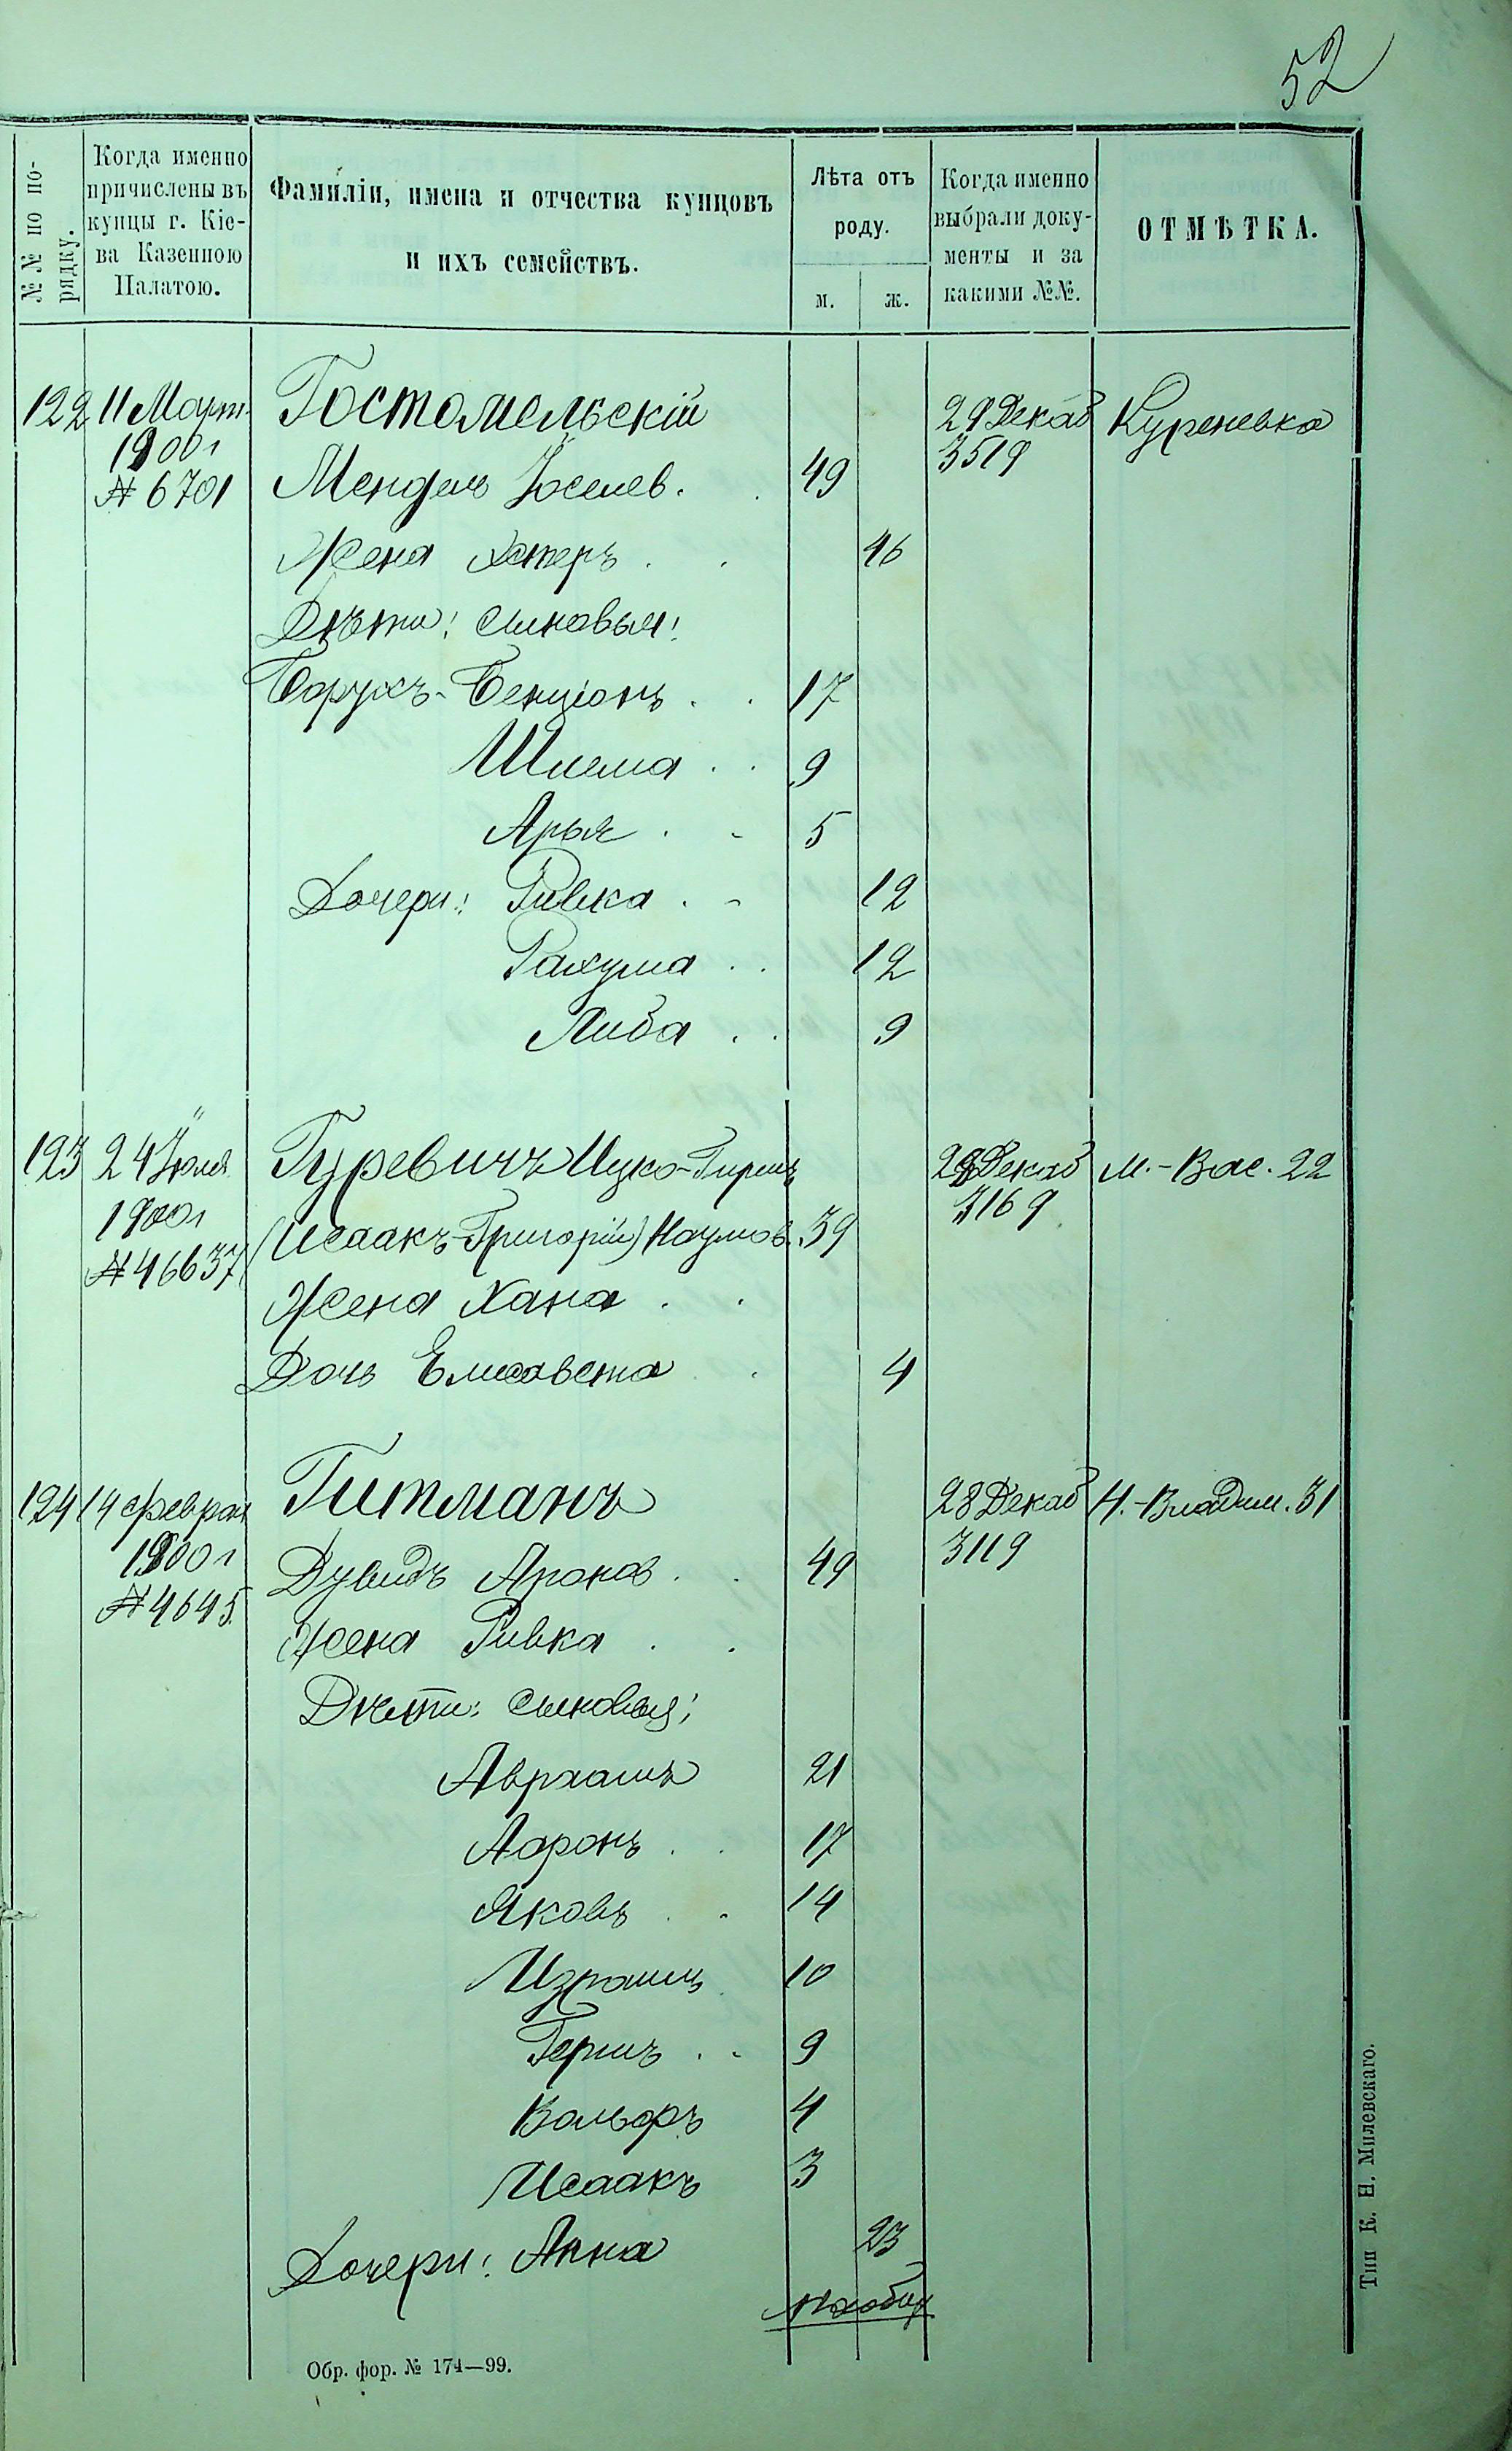 52
№№ по по-
рядку.
Когда именно
причислены въ
купцы г. Кіе-
ва Казенною
Палатою.
Фамиліи, имена и отчества купцовъ
и ихъ семействъ.
Лѣта отъ
роду.
м. ж.
Когда именно
выбрали доку-
менты и за
какими №№.
ОТМѢТКА.
122 11 Март. Гостомельскій 29 Декаб Куреневка
1900 г 3519
№ 6701 Мендель Іоселев. 49
Жена Эстеръ 46
Дѣти: сыновья:
Борухъ-Бенціонъ 17
Шлема 9
Арья 5
Дочери: Ривка 12
Рахума 12
Либа 9
123 24 Іюля Гуревичъ Ицко-Гиршъ 28 Декаб М.-Вас. 22
1900 г 3169
(Исаакъ-Григорій) Наумов. 39
№ 46637
Жена Хана
Дочь Елисавета 4
124 14 феврал Гитманъ 28 Декаб Н.-Владим. 31
1900 г 3119
Дувидъ Аронов 49
№ 4645
Жена Ривка
Дѣти: сыновья:
Авраамъ 21
Ааронъ 17
Яковъ 14
Израиль 10
Гершъ 9
Вольфъ 4
Исаакъ 3
Дочери: Анна 23
Обр. фор. № 174—99.
Тип К. Н. Милевскаго.